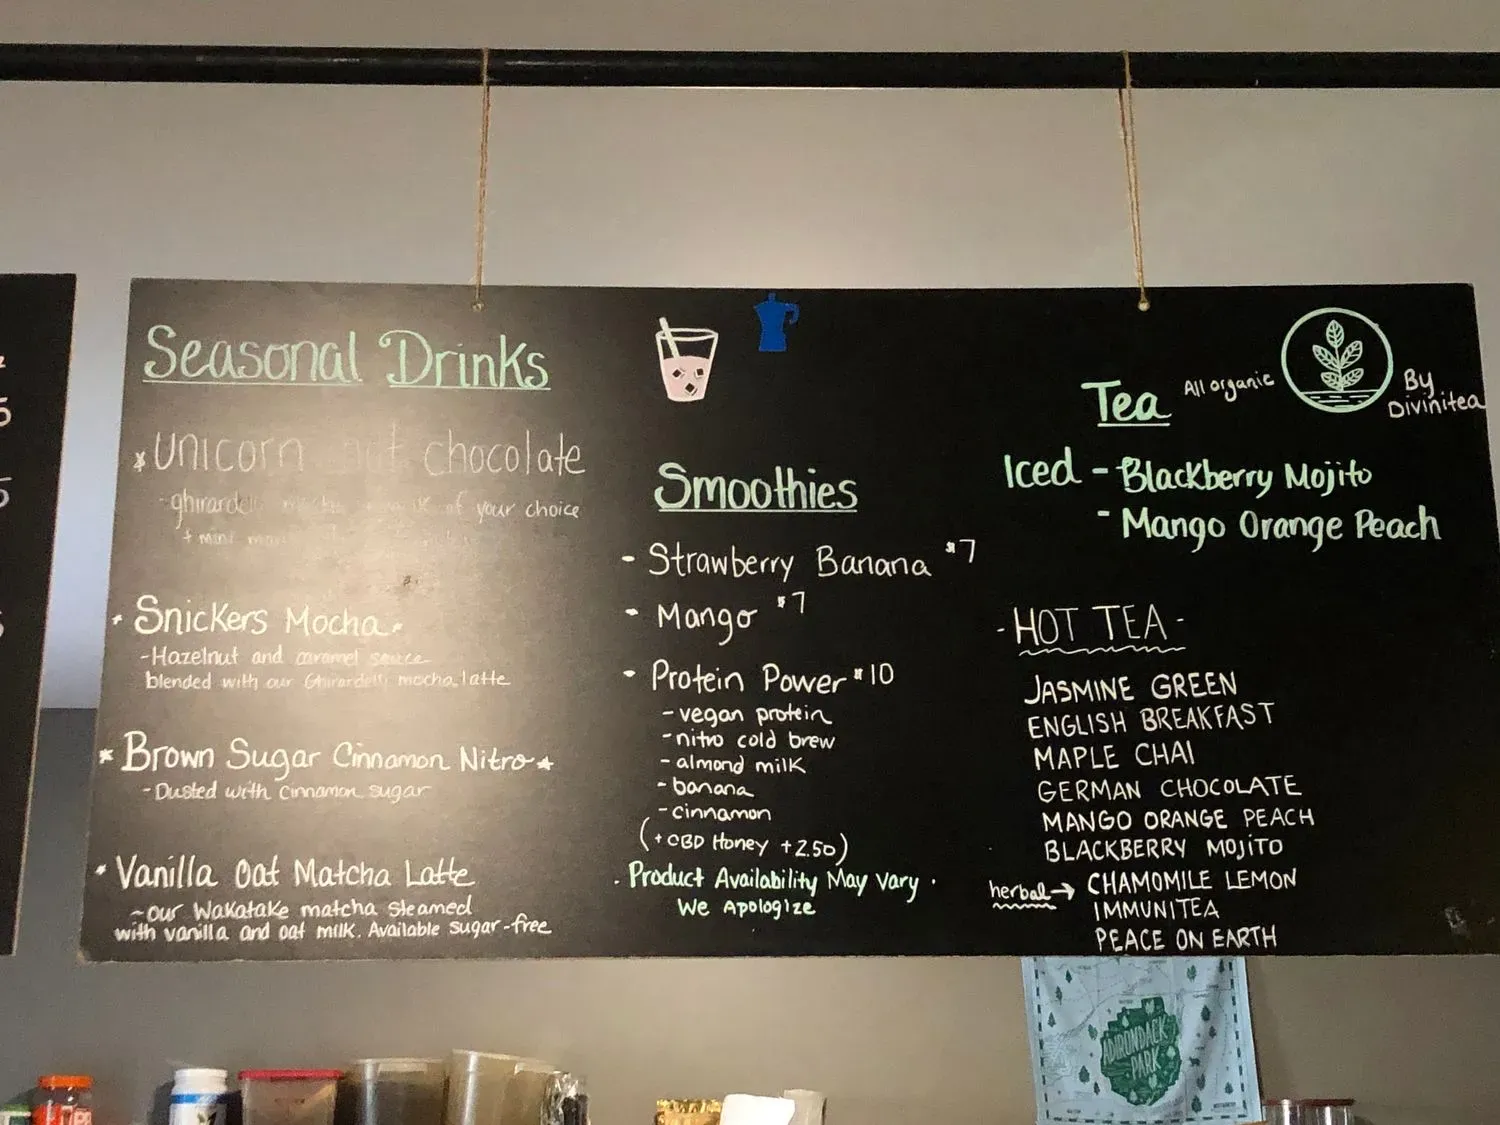 Seasonal Drinks
*Unicorn hot chocolate
- ghirardelli of your choice
+ mini
* Snickers Mocha *
-Hazelnut and caramel sauce
blended with our Ghirardelli mocha latte
* Brown Sugar Cinnamon Nitro *
- Dusted with cinnamon sugar
* Vanilla Oat Matcha Latte
~our Wakatake matcha steamed
with vanilla and oat milk. Available sugar-free
Smoothies
- Strawberry Banana $7
- Mango $7
- Protein Power $10
- vegan protein
- nitro cold brew
- almond milk
- banana
- cinnamon
(+ CBD Honey +2.50)
. Product Availability May Vary .
We Apologize
Tea All organic By
Divinitea
Iced - Blackberry Mojito
- Mango Orange Peach
- HOT TEA -
JASMINE GREEN
ENGLISH BREAKFAST
MAPLE CHAI
GERMAN CHOCOLATE
MANGO ORANGE PEACH
BLACKBERRY MOJITO
herbal → CHAMOMILE LEMON
IMMUNITEA
PEACE ON EARTH
ADIRONDACK
PARK